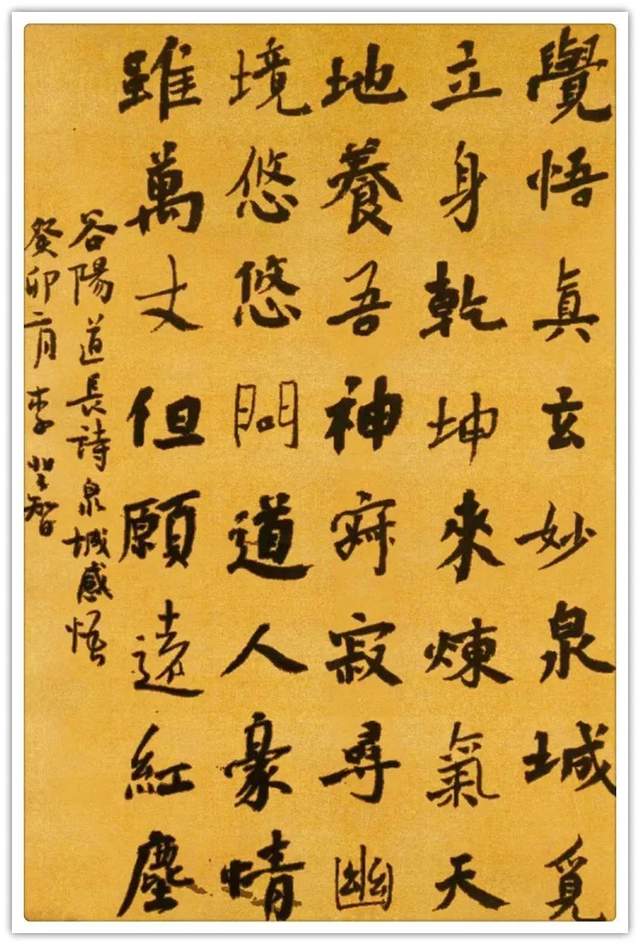 覺悟眞玄妙泉城覓
立身乾坤來煉氣天
地養吾神寂寂尋幽
境悠悠問道人豪情
雖萬丈但願遠紅塵
谷陽道長詩泉城感悟
癸卯二月李智